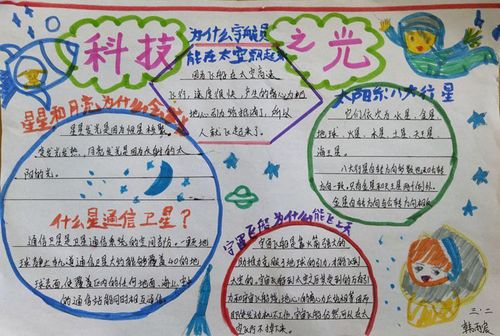 科技之光
为什么宇航员
能在太空飘起来
因为飞船在太空高速
飞行，速度很快，产生的离心力把
地心引力给抵消了，所以
人就飞起来了。
星星和月亮为什么会
星星发光是因为恒星
发光发热，月亮发光是因为反射的太
阳的光。
什么是通信卫星？
通信卫星是卫星通信系统的空间部分。一颗地
球静止轨道通信卫星大约能够覆盖40的地
球表面，使覆盖区内的任何地面、海上、空中
的通信站能同时相互通信。
太阳系八大行星
它们依次为水星、金星、
地球、火星、木星、土星、天王星、
海王星。
八大行星自转方向多数也和公转
方向一致。只有金星和天王星两个例外。
金星自转方向与公转方向相反。
宇宙飞船为什么能飞上天
宇宙飞船是靠火箭强大的
推力
太空的。
三、二